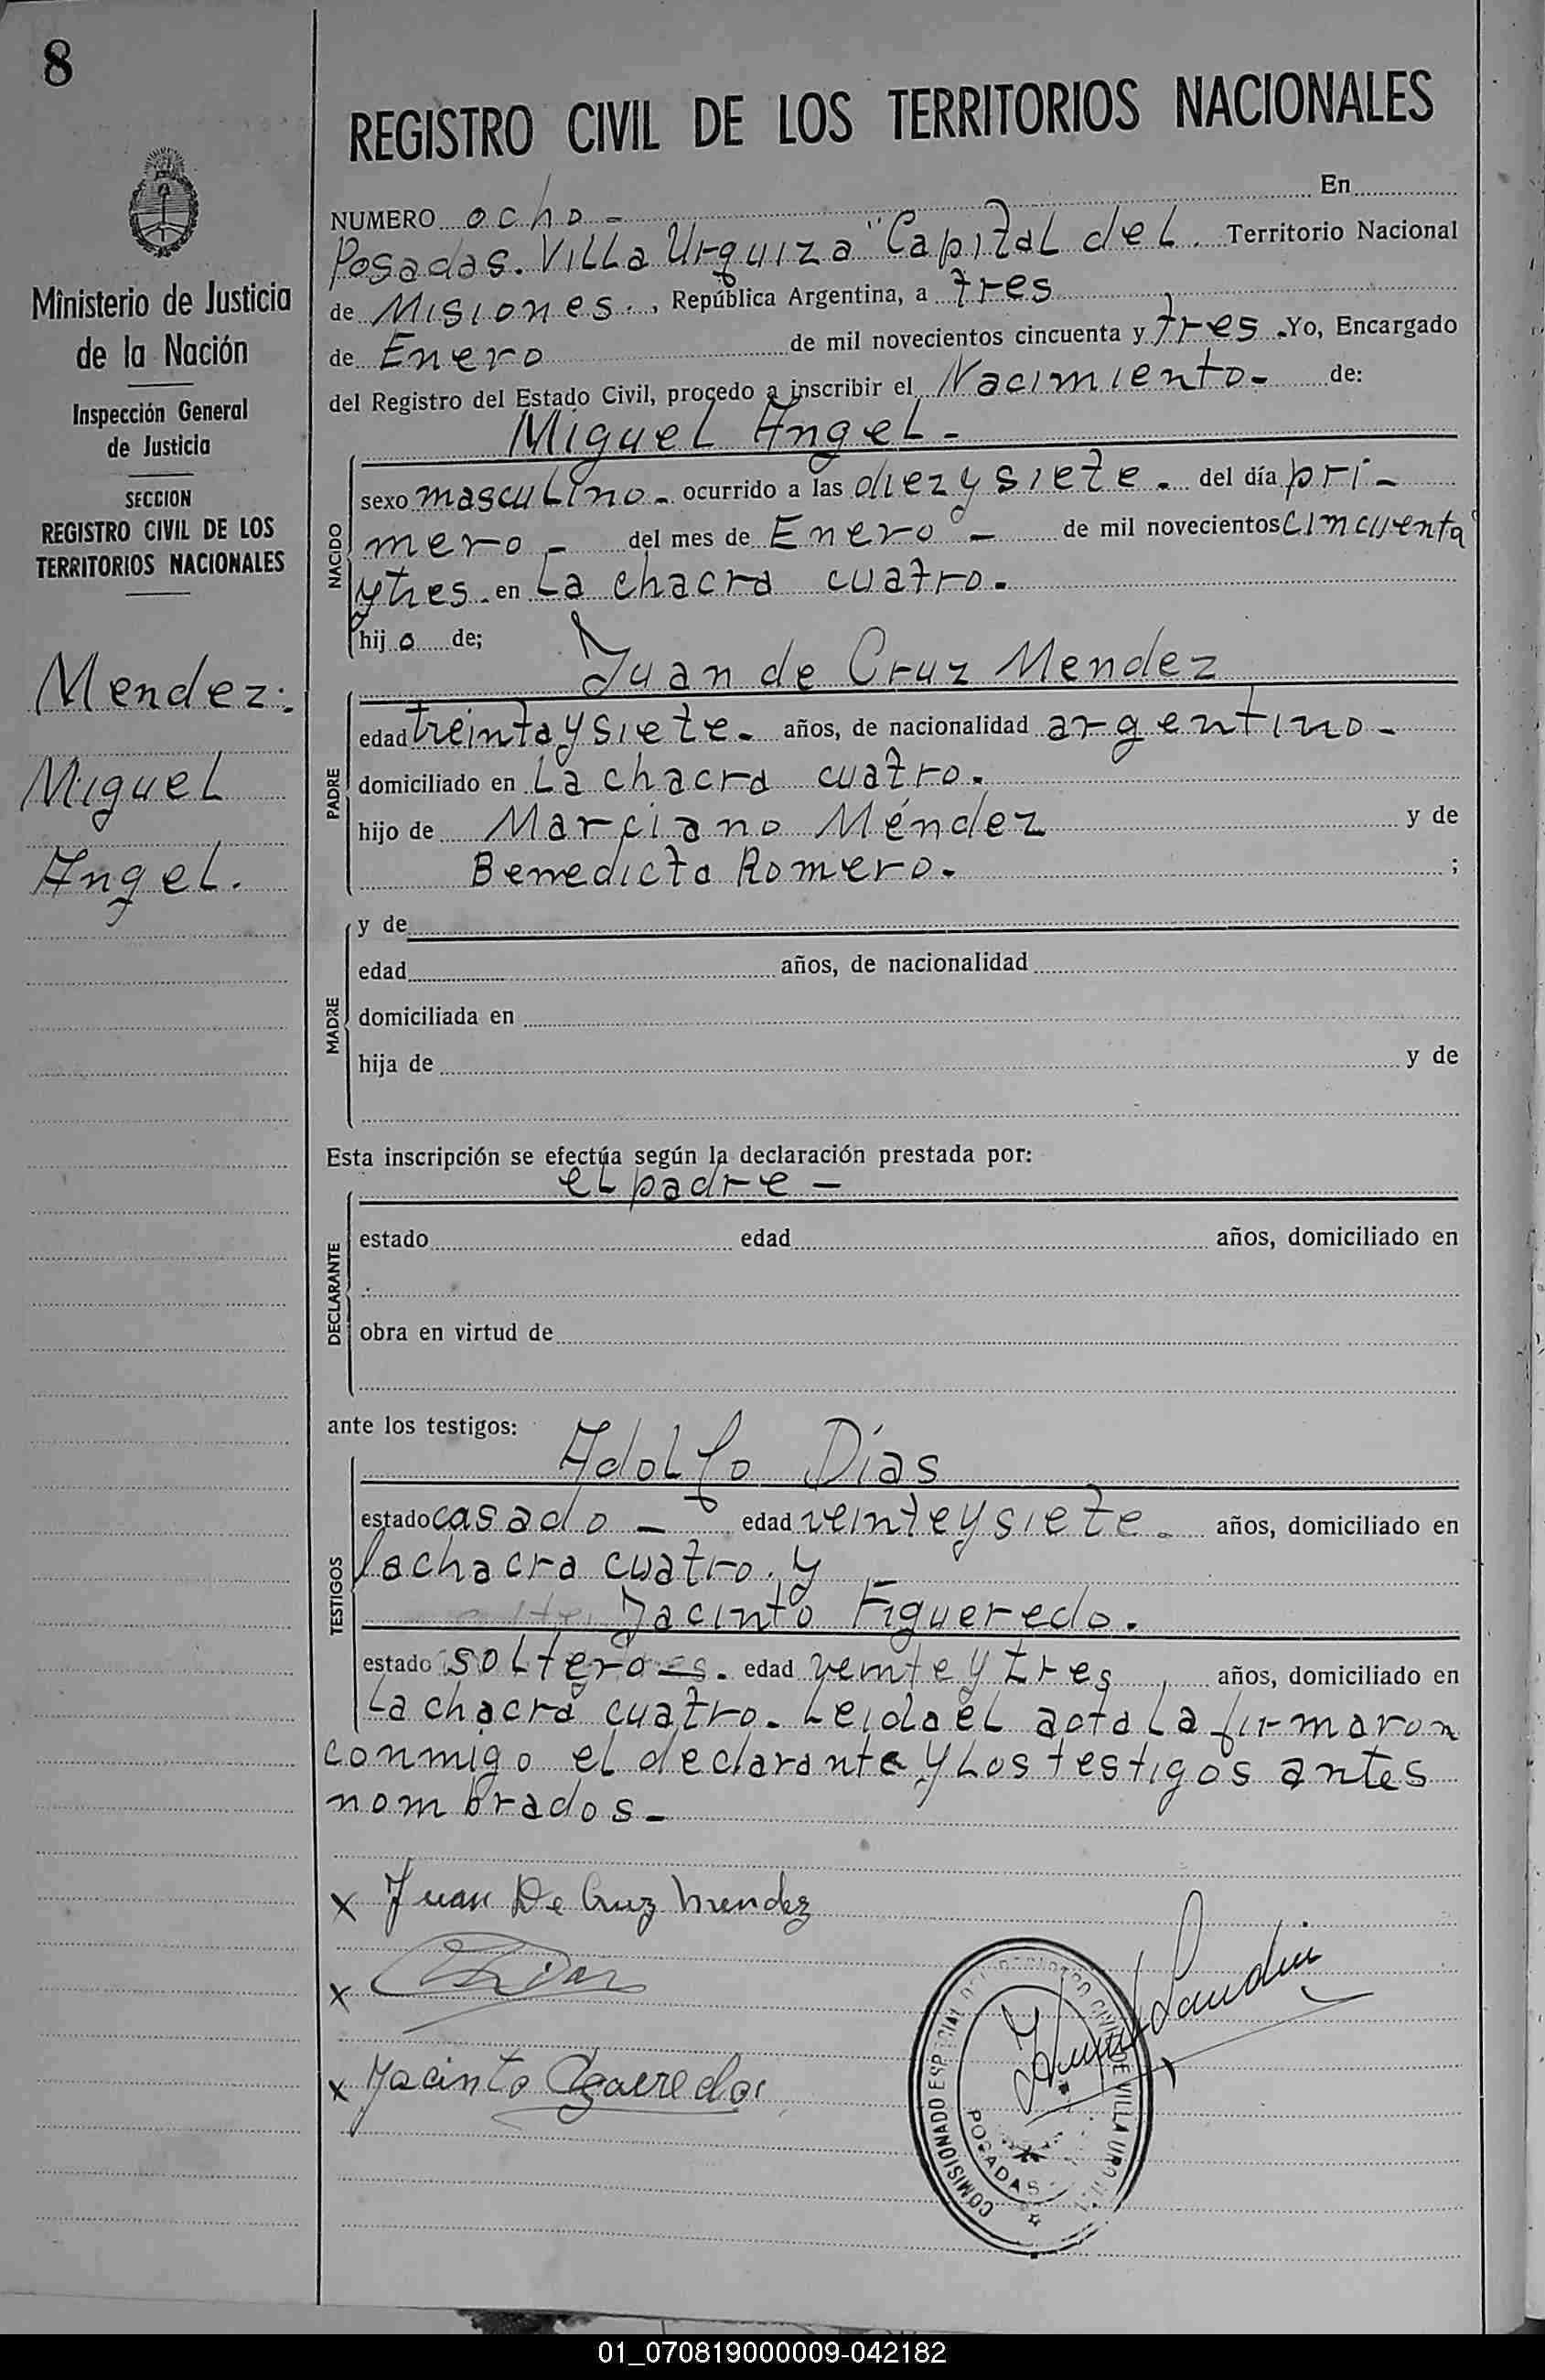 8
Ministerio de Justicia
de la Nación
Inspección General
de Justicia
SECCION
REGISTRO CIVIL DE LOS
TERRITORIOS NACIONALES
Mendez:
Miguel
Angel.
REGISTRO CIVIL DE LOS TERRITORIOS NACIONALES
NUMERO ocho - En
Posadas. Villa Urquiza "Capital del. Territorio Nacional
de Misiones., República Argentina, a tres
de Enero de mil novecientos cincuenta y tres. Yo, Encargado
del Registro del Estado Civil, procedo a inscribir el Nacimiento- de:
Miguel Angel-
NACIDO
sexo masculino- ocurrido a las diez y siete. del día pri-
mero- del mes de Enero - de mil novecientos cincuenta
y tres. en La chacra cuatro.
hijo de;
Juan de Cruz Mendez
PADRE
edad treinta y siete. años, de nacionalidad argentino-
domiciliado en La chacra cuatro.
hijo de Marciano Méndez y de
Benedicta Romero. ;
MADRE
y de
edad años, de nacionalidad
domiciliada en
hija de y de
Esta inscripción se efectúa según la declaración prestada por:
el padre -
DECLARANTE
estado edad años, domiciliado en
obra en virtud de
ante los testigos:
Adolfo Días
TESTIGOS
estado casado - edad veinte y siete. años, domiciliado en
la chacra cuatro. y
Jacinto Figueredo.
estado soltero. edad veinte y tres años, domiciliado en
La chacra cuatro. Leida el acta la firmaron
conmigo el declarante y los testigos antes
nombrados-
x Juan De Cruz Mendez
x
x Jacinto
COMISIONADO ESPECIAL DEL REGISTRO CIVIL DE VILLA URQUIZA
POSADAS
01_070819000009-042182